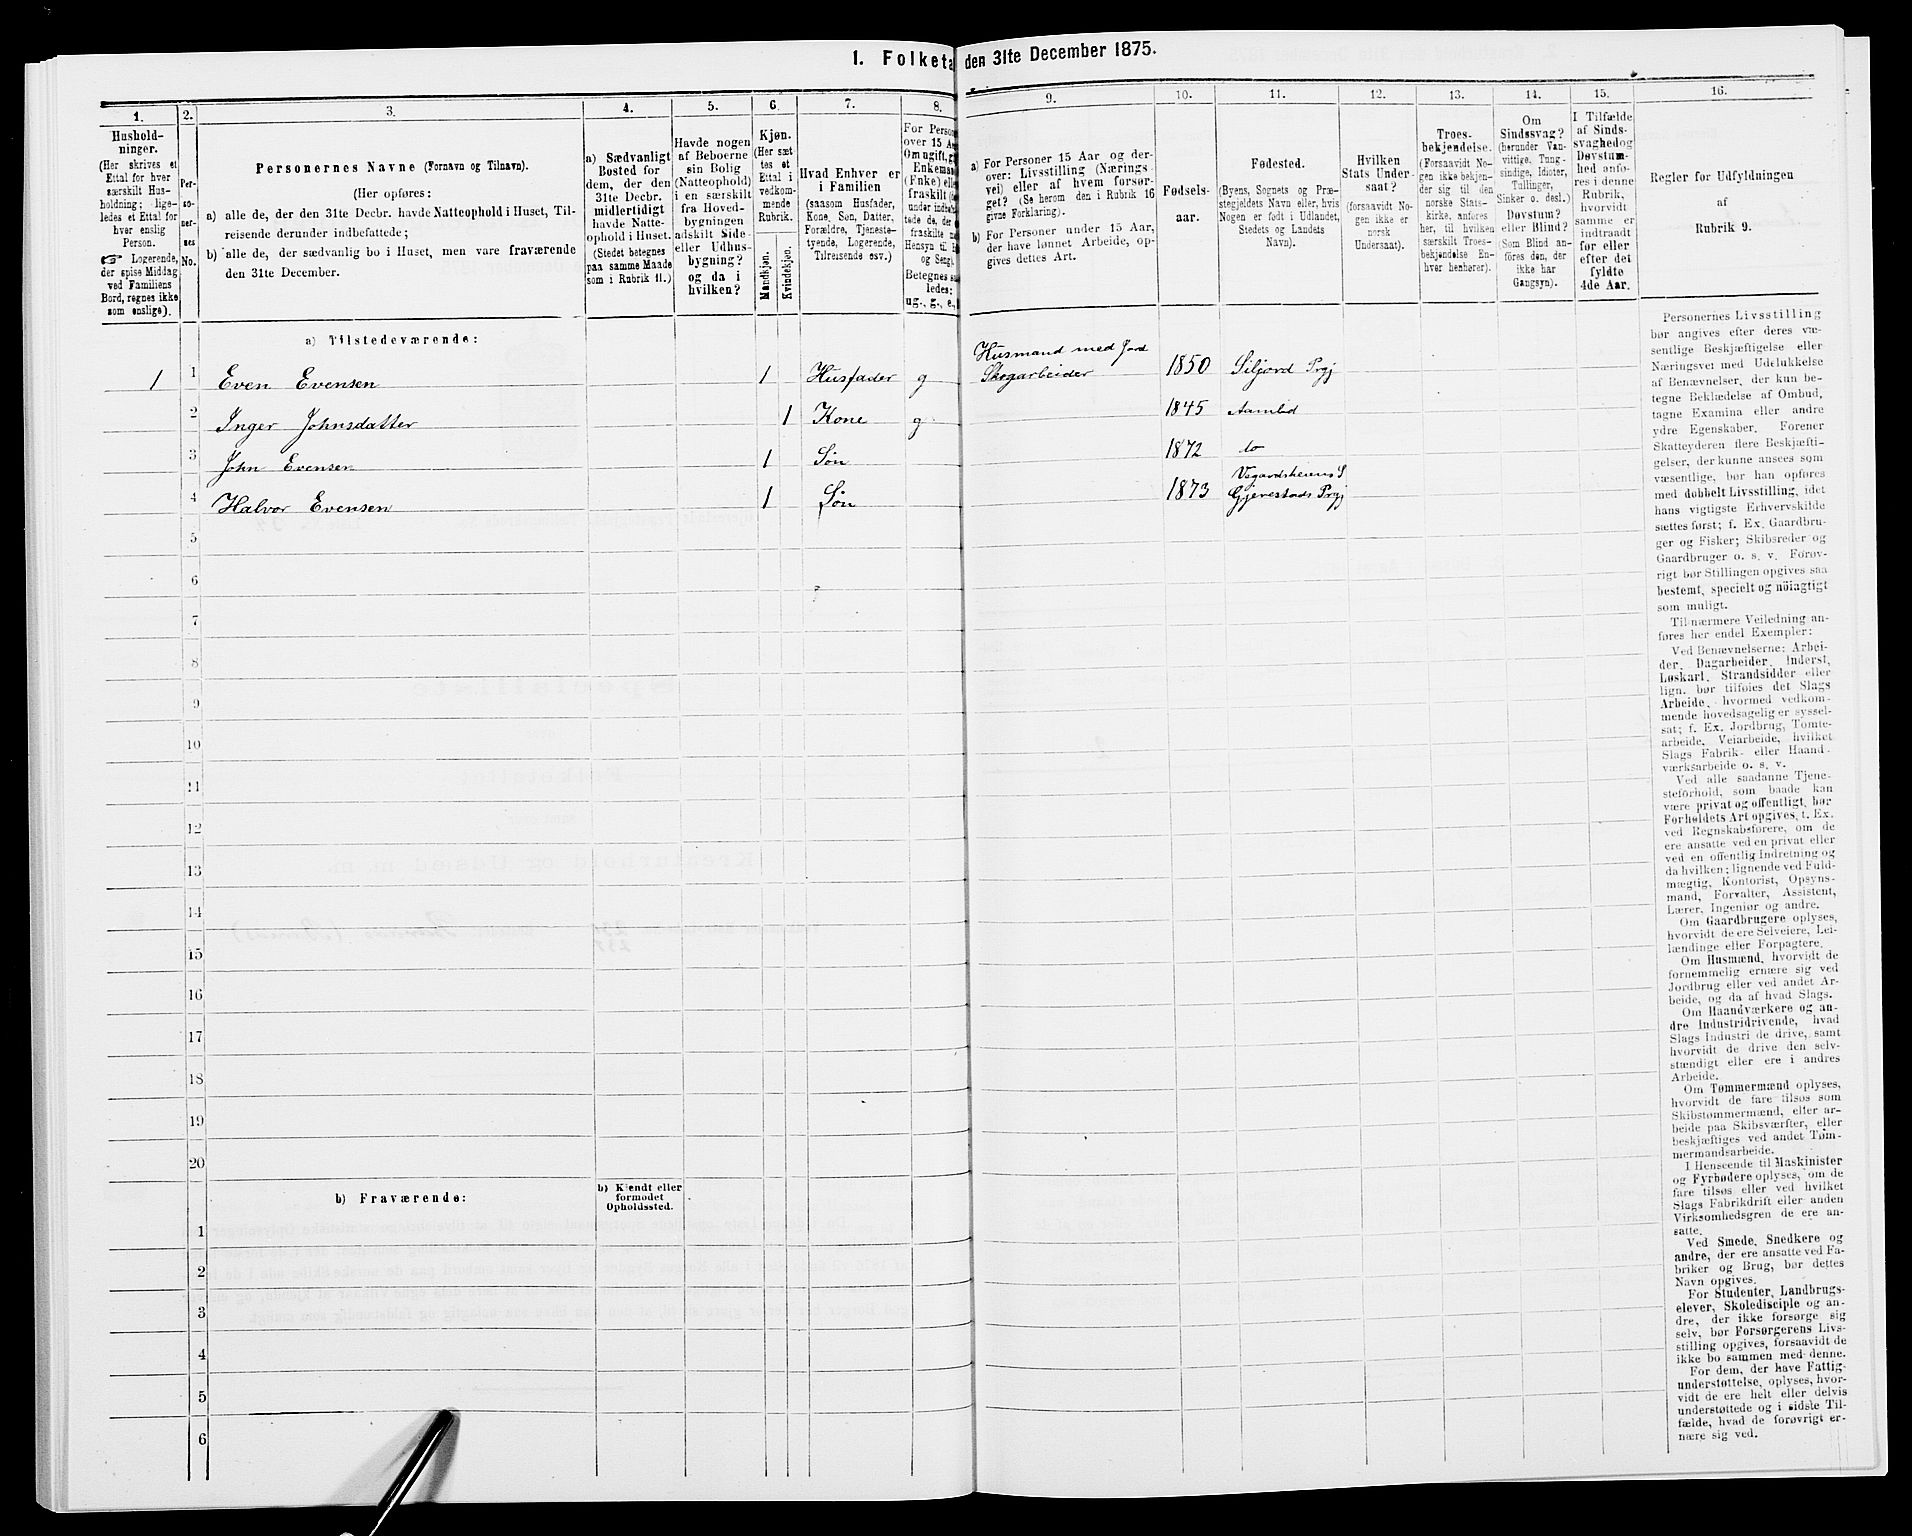 1. Folketa den 31te December 1875.
1. 2. 3. 4. 5. 6. 7. 8. 9. 10. 11. 12. 13. 14. 15. 16.
Hushold-
ninger.
(Her skrives et
Ettal for hver
særskilt Hus-
holdning; lige-
ledes et Ettal for
hver enslig
Person.
☞ Logerende,
der spise Middag
ved Familiens
Bord, regnes ikke
som enslige).
Per-
so-
ner-
nes
No.
Personernes Navne (Fornavn og Tilnavn).
(Her opføres:
a) alle de, der den 31te Decbr. havde Natteophold i Huset, Til-
reisende derunder indbefattede;
b) alle de, der sædvanlig bo i Huset, men vare fraværende
den 31te December.
a) Sædvanligt
Bosted for
dem, der den
31te Decbr.
midlertidigt
havde Natte-
ophold i Huset.
(Stedet betegnes
paa samme Maade
som i Rubrik 11.)
Havde nogen
af Beboerne
sin Bolig
(Natteophold)
i en særskilt
fra Hoved-
bygningen
adskilt Side-
eller Udhus-
bygning?
og da i
hvilken?
Kjøn.
(Her sæt-
tes et
Ettal i
vedkom-
mende
Rubrik.
Mandkjøn.
Kvindekjøn.
Hvad Enhver er
i Familien
(saasom Husfader,
Kone, Søn, Datter,
Forældre, Tjeneste-
tyende, Logerende,
Tilreisende osv.)
For Person
over 15 A
Om ugift, g
Enkemand
(Enke) ell
fraskilt
under indbe
tede de, der
fraskilte
Hensyn til
og Seng).
Betegnes s
ledes:
ug., g., e.,
a) For Personer 15 Aar og der-
over: Livsstilling (Nærings-
vei) eller af hvem forsør-
get? (Se herom den i Rubrik 16
givne Forklaring).
b) For Personer under 15 Aar,
der have lønnet Arbeide, op-
gives dettes Art.
Fødsels-
aar.
Fødested.
(Byens, Sognets og Præ-
stegjeldets Navn eller, hvis
Nogen er født i Udlandet,
Stedets og Landets
Navn).
Hvilken
Stats Under-
saat?
(forsaavidt No-
gen ikke er
norsk
Undersaat).
Troes-
bekjendelse.
(Forsaavidt No-
gen ikke bekjen-
der sig til den
norske Stats-
kirke, anføres
her, til hvilken
særskilt Troes-
bekjendelse En-
hver henhører).
Om
Sindssvag?
(herunder Van-
vittige, Tung-
sindige, Idioter,
Tullinger,
Sinker o. desl.)
Døvstum?
eller Blind?
(Som Blind an-
føres den, der
ikke har
Gangsyn).
I Tilfælde
af Sinds-
svaghed og
Døvstum-
hed anfø-
res i denne
Rubrik,
hvorvidt
samme er
indtraadt
før eller
efter det
fyldte
4de Aar.
Regler for Udfyldningen
af
Rubrik 9.
a) Tilstedeværende:
Husmand med Jord
1 1 Even Evensen 1 Husfader g Skogarbeider 1850 Siljord Prgj
2 Inger Johnsdatter 1 Kone g 1845 Aamlid
3 John Evensen 1 Søn 1872 do
Vegardsheiens S
4 Halvor Evensen 1 Søn 1873 Gjerestads Prgj
5
6
7
8
9
10
11
12
13
14
15
16
17
18
19
20
b) Fraværende:
b) Kjendt eller
formodet
Opholdssted.
1
2
3
4
5
6
Personernes Livsstilling
bør angives efter deres væ-
sentlige Beskjæftigelse eller
Næringsvei med Udelukkelse
af Benævnelser, der kun be-
tegne Beklædelse af Ombud,
tagne Examina eller andre
ydre Egenskaber. Forener
Skatteyderen flere Beskjæfti-
gelser, der kunne ansees som
væsentlige, bør han opføres
med dobbelt Livsstilling, idet
hans vigtigste Erhvervskilde
sættes først; f. Ex. Gaardbru-
ger og Fisker; Skibsreder og
Gaardbruger o. s. v. Forøv-
rigt bør Stillingen opgives saa
bestemt, specielt og nöiagtigt
som muligt.
Til nærmere Veiledning an-
føres her endel Exempler:
Ved Benævnelserne: Arbei-
der, Dagarbeider, Inderst,
Løskarl, Strandsidder eller
lign. bør tilføies det Slags
Arbeide, hvormed vedkom-
mende hovedsagelig er syssel-
sat; f. Ex. Jordbrug, Tomte-
arbeide, Veiarbeide, hvilket
Slags Fabrik- eller Haand-
værksarbeide o. s. v.
Ved alle saadanne Tjene-
steforhold, som baade kan
være privat og offentligt, bør
Forholdets Art opgives, t. Ex.
ved Regnskabsførere, om de
ere ansatte ved en privat eller
ved en offentlig Indretning og
da hvilken; lignende ved Fuld-
mægtig, Kontorist, Opsyns-
mand, Forvalter, Assistent,
Lærer, Ingeniør og andre.
Om Gaardbrugere oplyses,
hvorvidt de ere Selveiere, Lei-
lændinge eller Forpagtere.
Om Husmænd, hvorvidt de
fornemmelig ernære sig ved
Jordbrug eller ved andet Ar-
beide, og da af hvad Slags.
Om Haandværkere og an-
dre Industridrivende, hvad
Slags Industri de drive, samt
hvorvidt de drive den selv-
stændigt eller ere i andres
Arbeide.
Om Tømmermænd oplyses,
hvorvidt de fare tilsøs som
Skibstømmermænd, eller ar-
beide paa Skibsværfter, eller
beskjæftiges ved andet Tøm-
mermandsarbeide.
I Henseende til Maskinister
og Fyrbødere oplyses, om de
fare tilsøs eller ved hvilket
Slags Fabrikdrift eller anden
Virksomhedsgren de ere an-
satte.
Ved Smede, Snedkere og
andre, der ere ansatte ved Fa-
briker og Brug, bør dettes
Navn opgives.
For Studenter, Landbrugs-
elever, Skoledisciple og an-
dre, der ikke forsørge sig
selv, bør Forsørgerens Livs-
stilling opgives, forsaavidt de
ikke bo sammen med denne.
For dem, der have Fattig-
understøttelse, oplyses, hvor-
vidt de ere helt eller delvis
understøttede og i sidste Til-
fælde, hvad de forøvrigt er-
nære sig ved.